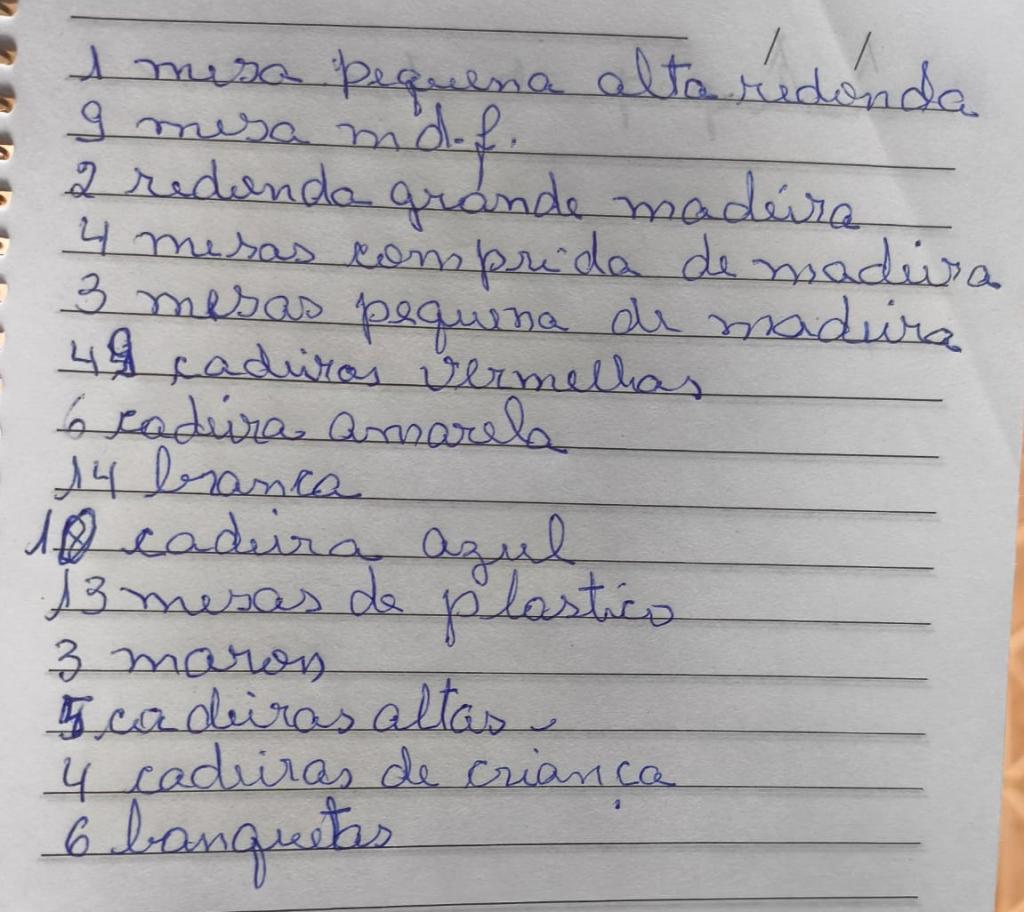 1 mesa pequena alta redonda
9 mesa md.f.
2 redonda grande madeira
4 mesas comprida de madeira
3 mesas pequena de madeira
49 cadeiras vermelhas
6 cadeira amarela
14 branca
10 cadeira azul
13 mesas de plastico
3 maron
5 cadeiras altas
4 cadeiras de criança
6 banquetas